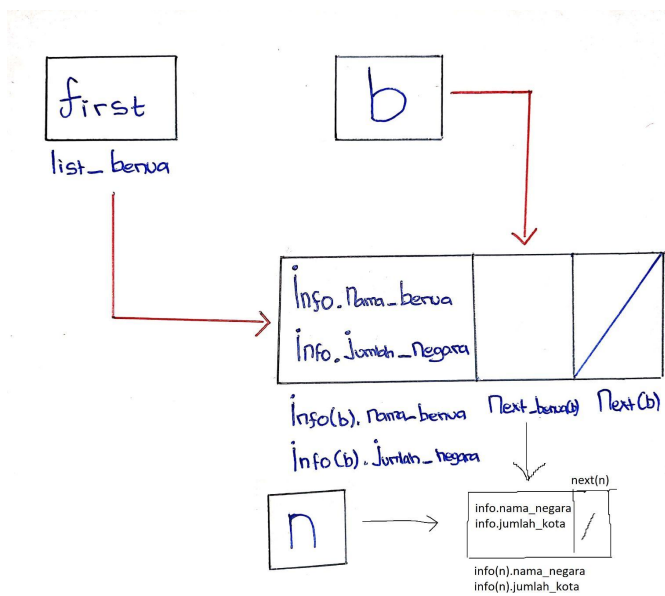 first
list_benua
b
Info.nama_benua
Info.jumlah_Negara
Info(b).nama_benua
Info(b).jumlah_negara
Next_benua(b)
Next(b)
n
next(n)
info.nama_negara
info.jumlah_kota
info(n).nama_negara
info(n).jumlah_kota